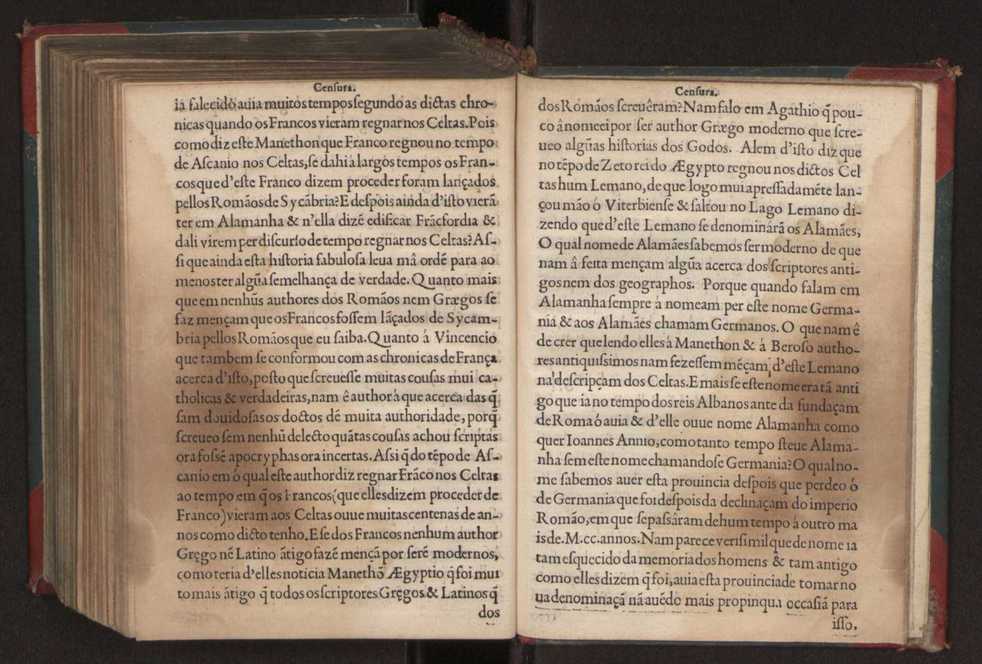 Censura.
ia falecido auia muitos tempos segundo as dictas chro-
nicas quando os Francos vieram regnar nos Celtas. Pois
como diz este Manethon que Franco regnou no tempo
de Ascanio nos Celtas, se dahi a largos tempos os Fran-
cos que d'este Franco dizem proceder foram lançados
pellos Romãos de Sycãbria? E despois ainda d'isto vierã
ter em Alamanha & n'ella dizẽ edificar Frãcfordia &
dali virem per discurso de tempo regnar nos Celtas? As-
si que ainda esta historia fabulosa leua mâ ordẽ para ao
menos ter algũa semelhança de verdade. Quanto mais
que em nenhũs authores dos Romãos nem Grægos se
faz mençam que os Francos fossem lãçados de Sycam-
bria pellos Romãos que eu saiba. Quanto á Vincencio
que tambem se conformou com as chronicas de França
acerca d'isto, posto que screuesse muitas cousas mui ca-
tholicas & verdadeiras, nam ê author à que acerca das q̃
sam douidosas os doctos dẽ muita authoridade, porq̃
screueo sem nenhũ delecto quãtas cousas achou scriptas
ora fossẽ apocryphas ora incertas. Assi q̃ do tẽpo de As-
canio em ó qual este author diz regnar Frãco nos Celtas
ao tempo em q̃ os Francos (que elles dizem proceder de
Franco) vieram aos Celtas ouue muitas centenas de an-
nos como dicto tenho. E se dos Francos nenhum author
Gręgo nẽ Latino ãtigo fazẽ mençã por serẽ modernos,
como teria d'elles noticia Manethõ Ægyptio q̃ foi mui
to mais ãtigo q̃ todos os scriptores Gręgos & Latinos q̃
dos
Censura.
dos Romãos screuêram? Nam falo em Agathio q̃ pou-
co â nomeei por ser author Græego moderno que scre-
ueo algũas historias dos Godos. Alem d'isto diz que
no tẽpo de Zeto rei do Ægypto regnou nos dictos Cel
tas hum Lemano, de que logo mui apressadamẽte lan-
çou mão ó Viterbiense & saltou no Lago Lemano di-
zendo que d'este Lemano se denominárã os Alamães,
O qual nome de Alamães sabemos ser moderno de que
nam â feita mençam algũa acerca dos scriptores anti-
gos nem dos geographos. Porque quando falam em
Alamanha sempre à nomeam per este nome Germa-
nia & aos Alamães chamam Germanos. O que nam ê
de crer que lendo elles à Manethon & á Beroso autho-
res antiquissimos nam fezessem mẽçam d'este Lemano
na descripçam dos Celtas. E mais se este nome era tã anti
go que ia no tempo dos reis Albanos ante da fundaçam
de Roma ó auia & d'elle ouue nome Alamanha como
quer Ioannes Annio, como tanto tempo steue Alama-
nha sem este nome chamandose Germania? O qual no-
me sabemos auer esta prouincia despois que perdeo ó
de Germania que foi despois da declinaçam do imperio
Romão, em que se passáram de hum tempo à outro ma
is de. M. cc. annos. Nam parece verisimil que de nome ia
tam esquecido da memoria dos homens & tam antigo
como elles dizem q̃ foi, auia esta prouincia de tomar no
ua denominaçã nã auẽdo mais propinqua occasiã para
isso.